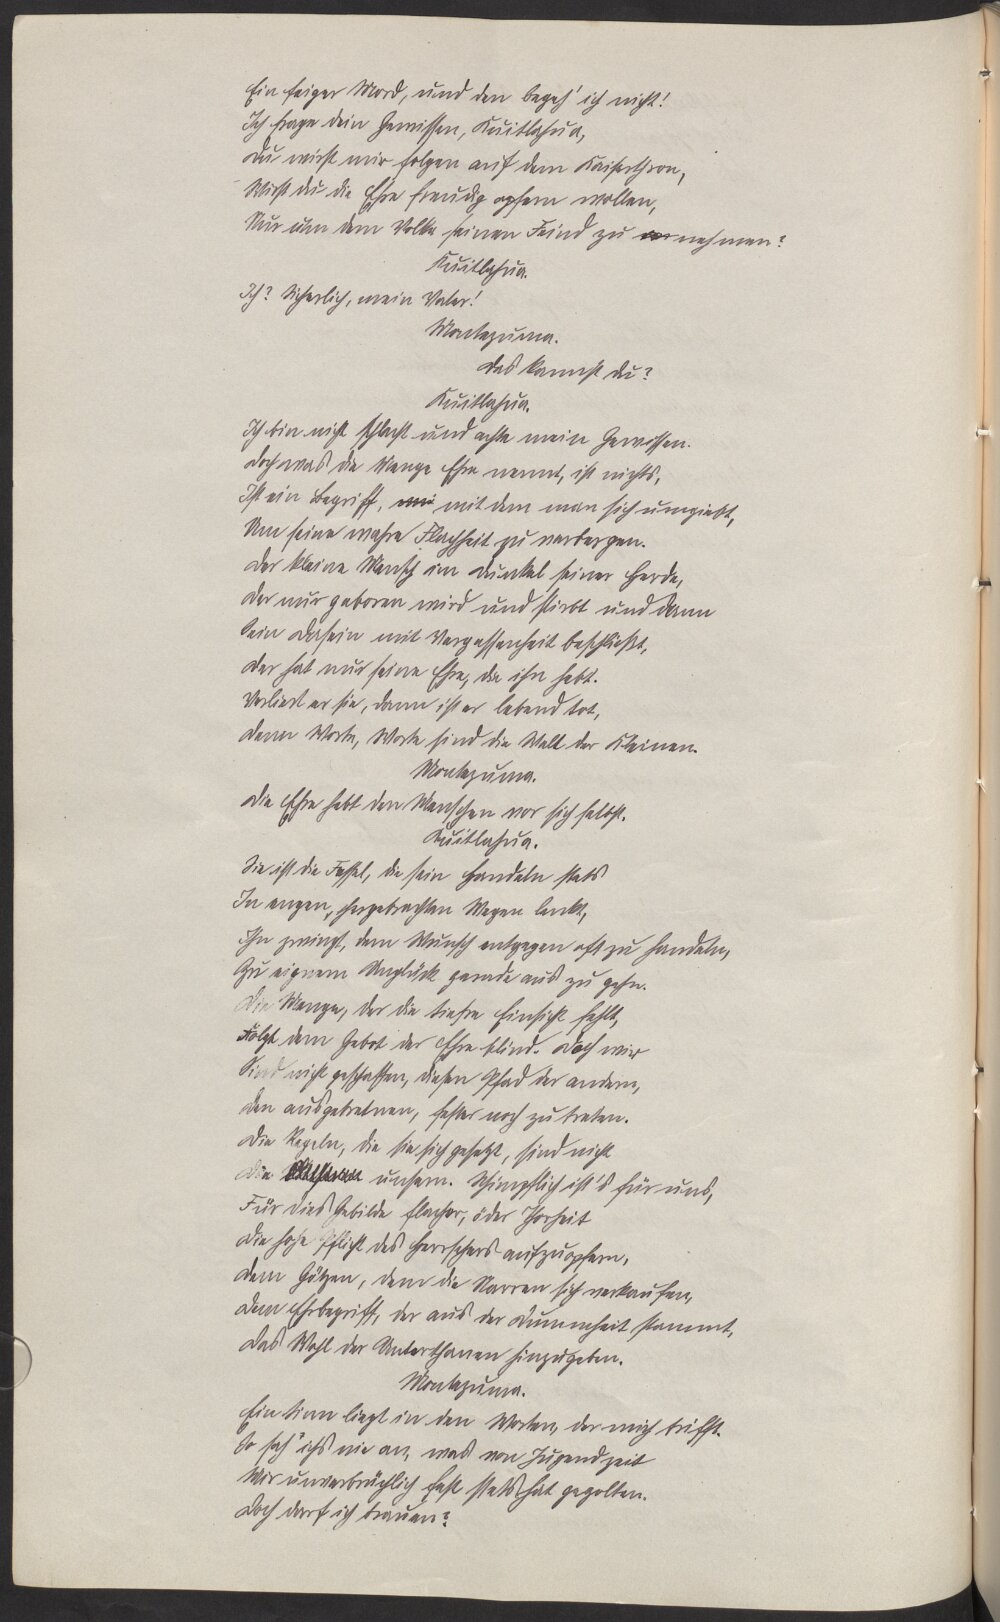 Ein feiger Mord, und den begeh' ich nicht!
Ich frage dein Gewissen, Kuitlahua,
Du wirst mir folgen auf dem Kaiserthron,
Wirst du die Ehre freudig opfern wollen,
Nur um dem Volke seinen Feind zu nehmen?
Kuitlahua.
Ich? Sicherlich, mein Vater!
Montezuma.
Das kannst du?
Kuitlahua.
Ich bin nicht schlecht und achte mein Gewissen.
Doch was die Menge Ehre nennt, ist nichts,
Ist ein Begriff, mit dem man sich umgiebt,
Um seine wahre Flachheit zu verbergen.
Der kleine Mensch im Dunkel seiner Herde,
Der nur geboren wird und stirbt und dann
Sein Dasein mit Vergessenheit beschließt,
Der hat nur seine Ehre, die ihn hebt.
Verliert er sie, dann ist er lebend tot,
Denn Worte, Worte sind die Welt der Kleinen.
Montezuma.
Die Ehre hebt den Menschen vor sich selbst.
Kuitlahua.
Sie ist die Fessel, die sein Handeln stets
In engen, hergebrachten Wegen lenkt,
Ihn zwingt, dem Wunsch entgegen oft zu handeln,
Zu eignem Unglück gerade aus zu gehn.
Die Menge, der die tiefre Einsicht fehlt,
Folgt dem Gebot der Ehre blind. Doch wir
Sind nicht geschaffen, diesen Pfad der andern,
Den ausgetretnen, fester noch zu treten.
Die Regeln, die sie sich gesetzt, sind nicht
Die unsern. Schimpflich ist's für uns,
Für dies Gebilde flacher, öder Thorheit
Die hohe Pflicht des Herrschers aufzuopfern,
Dem Götzen, dem die Narren sich verkaufen,
Dem Ehrbegriff, der aus der Dummheit stammt,
Das Wohl der Unterthanen hinzugeben.
Montezuma.
Ein Sinn liegt in den Worten, der mich trifft.
So sah' ichs nie an, was von Jugendzeit
Mir unverbrüchlich fest stets hat gegolten.
Doch darf ich trauen?